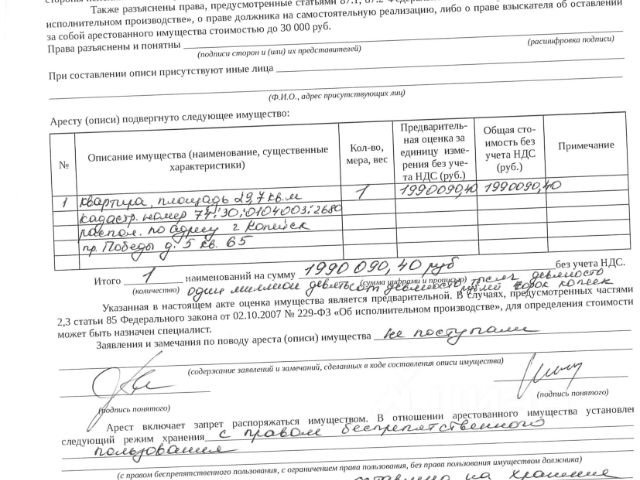 Также разъяснены права, предусмотренные статьями 87.1, 87.2
исполнительном производстве», о праве должника на самостоятельную реализацию, либо о праве взыскателя об оставлении
за собой арестованного имущества стоимостью до 30 000 руб.
Права разъяснены и понятны
(подписи сторон и (или) их представителей) (расшифровка подписи)
При составлении описи присутствуют иные лица
(Ф.И.О., адрес присутствующих лиц)
Аресту (описи) подвергнуто следующее имущество:
№ Описание имущества (наименование, существенные характеристики) Кол-во, мера, вес Предварительная оценка за единицу измерения без учета НДС (руб.) Общая стоимость без учета НДС (руб.) Примечание
1 Квартира, площадь 29,7 кв.м 1 1990090,40 1990090,40
кадастр. номер 74:30:0104003:2680
распол. по адресу г Копейск
пр. Победы д. 5 кв. 65
Итого 1 наименований на сумму 1990090,40 руб без учета НДС.
(количество) (сумма цифрами и прописью)
один миллион девятьсот девяносто тысяч девяносто рублей сорок копеек
Указанная в настоящем акте оценка имущества является предварительной. В случаях, предусмотренных частями
2,3 статьи 85 Федерального закона от 02.10.2007 № 229-ФЗ «Об исполнительном производстве», для определения стоимости
может быть назначен специалист.
Заявления и замечания по поводу ареста (описи) имущества не поступали
(содержание заявлений и замечаний, сделанных в ходе составления описи имущества)
(подпись понятого) (подпись понятого)
Арест включает запрет распоряжаться имуществом. В отношении арестованного имущества установлен
следующий режим хранения с правом беспрепятственного
пользования
(с правом беспрепятственного пользования, с ограничением права пользования, без права пользования имуществом должника)
оставлено на хранение